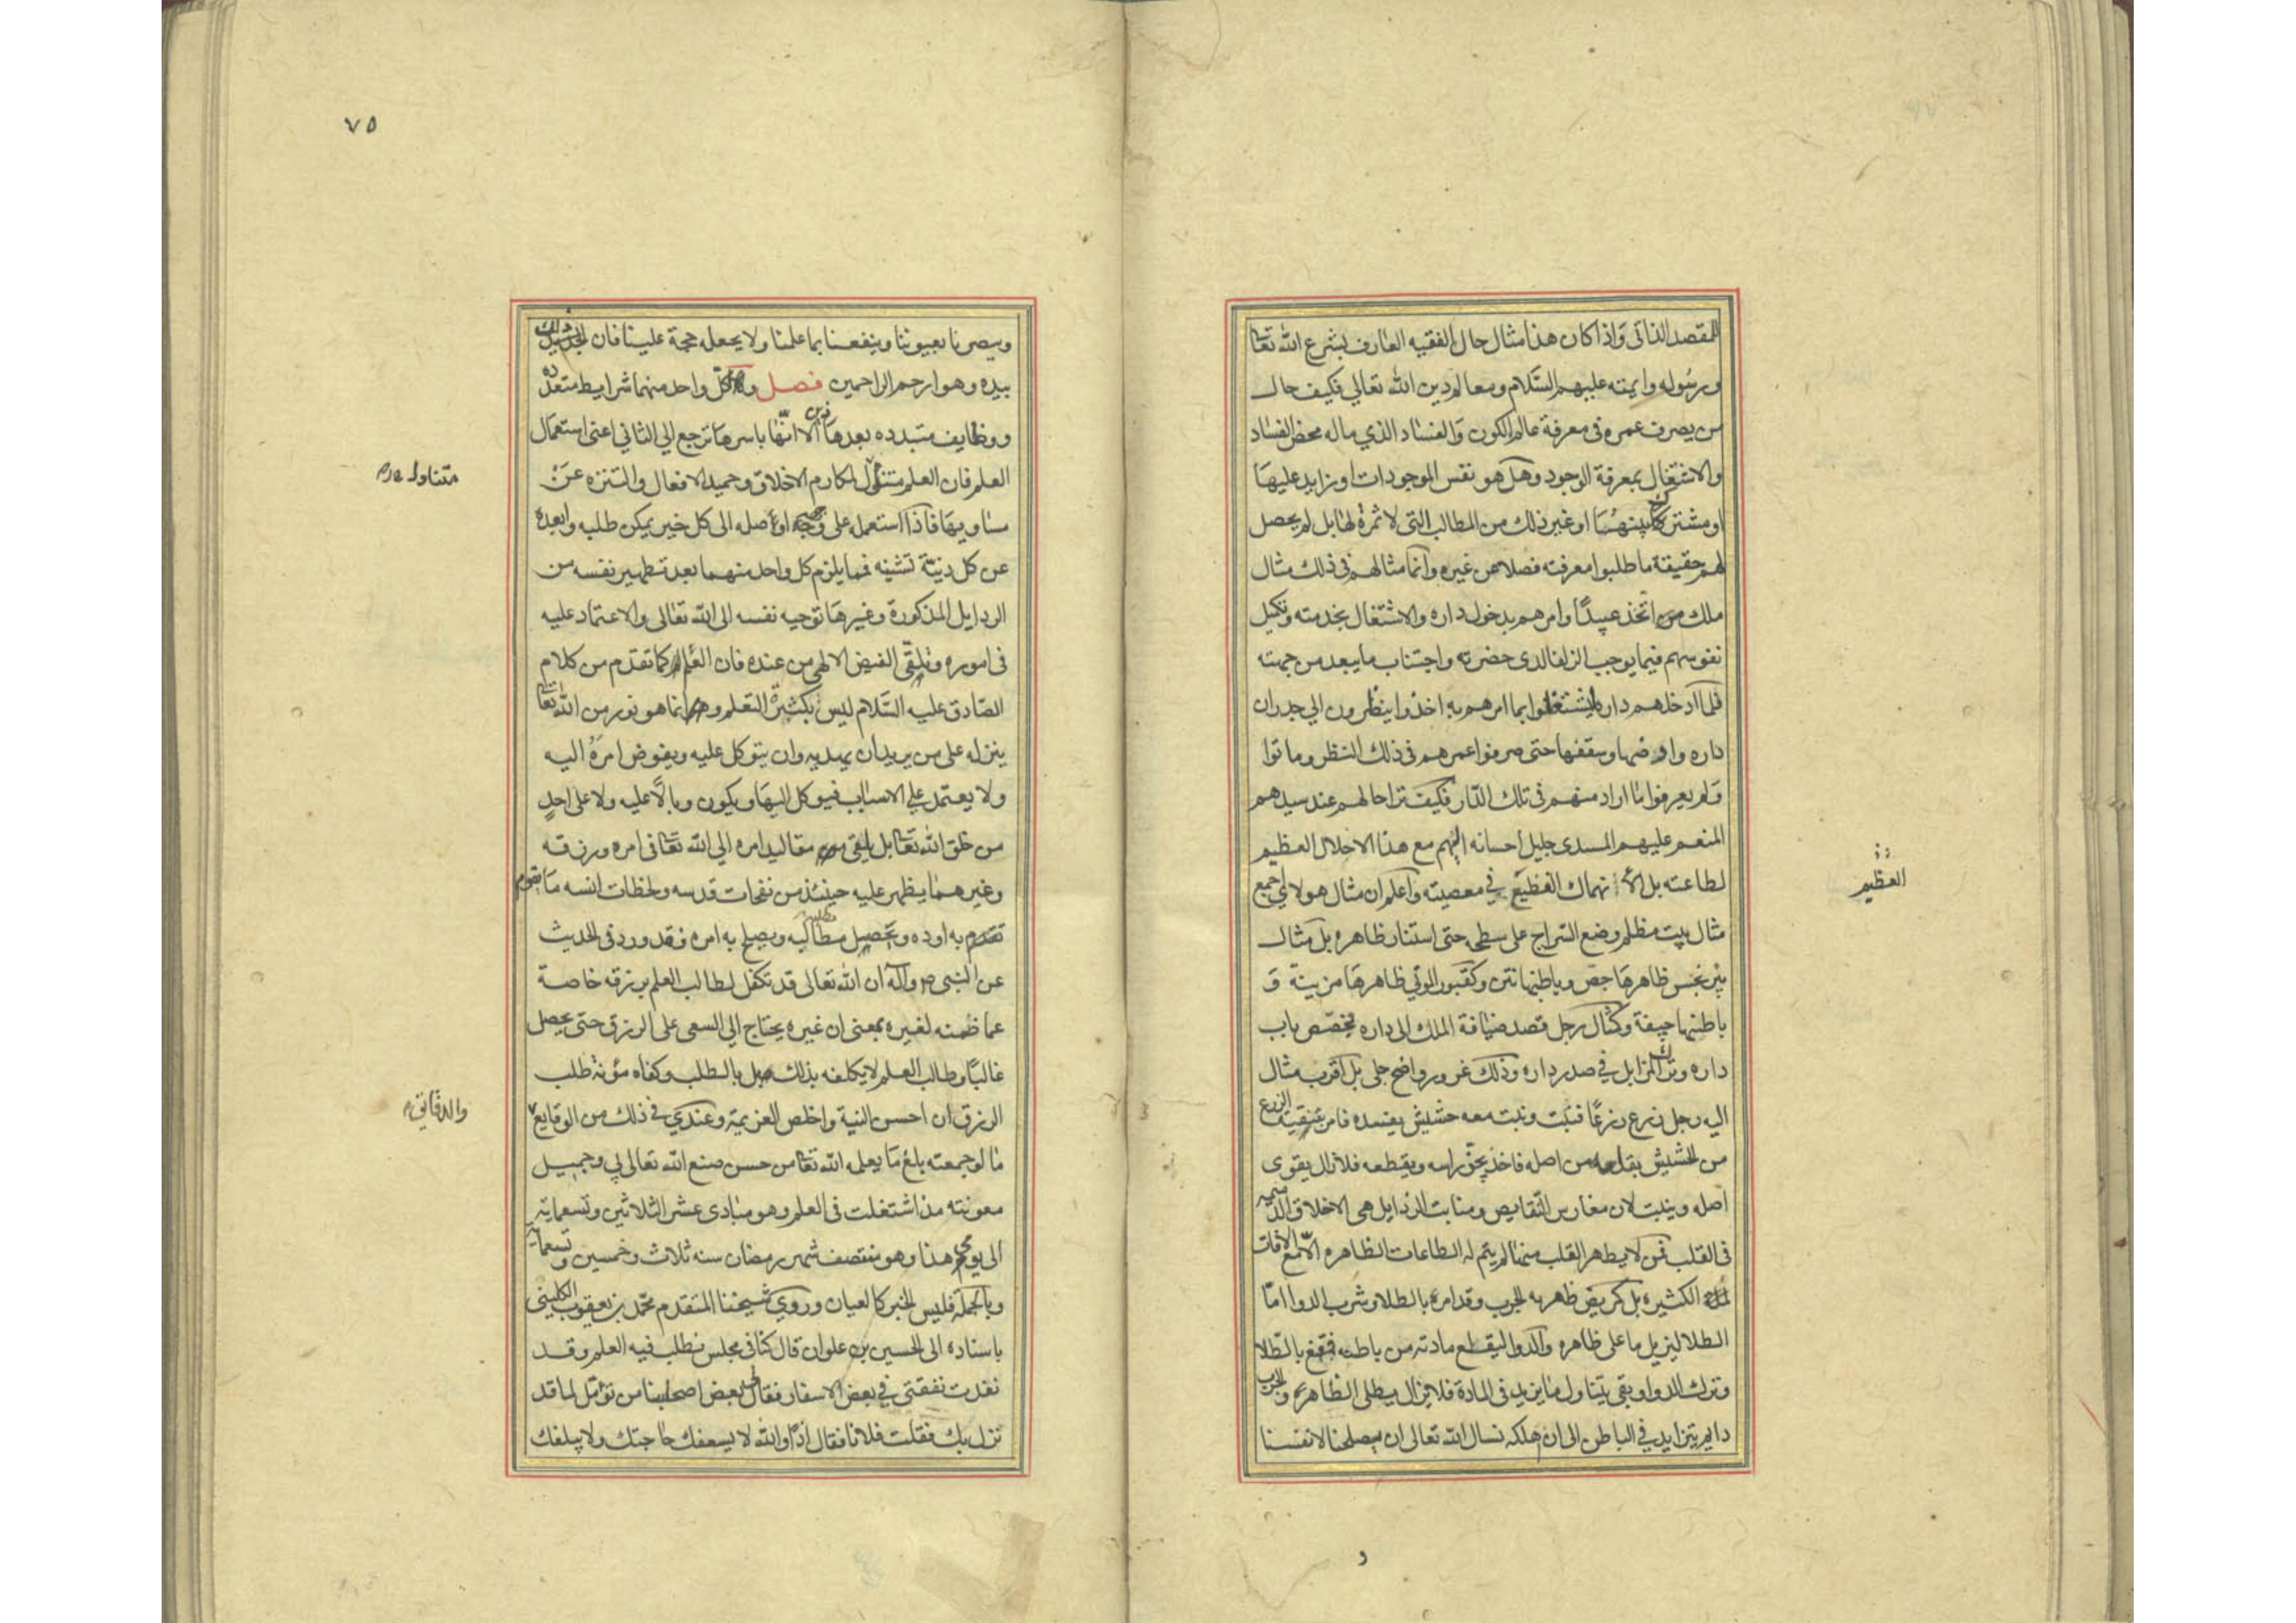 للمقصد الذاتي واذا كان هذا مثال حال الفقيه العارف بشرع الله تعا
ورسوله وايمته عليهم السلام ومعالم دين الله تعالي فكيف حال
من يصرف عمره في معرفة عالم الكون والفساد الذي ماله محض الفساد
والاشتغال بمعرفة الوجود وهل هو نفس الموجودات او زايد عليها
او مشترك بينهما او غير ذلك من المطالب التي لا ثمرة لها بل لم يحصل
لهم حقيقة ما طلبوا معرفته فضلا عن غيره وانما مثالهم في ذلك مثال
ملك اتخذ عبيدًا وامرهم بدخول داره والاشتغال بخدمته وتكميل
نفوسهم فيما يوجب الزلفا لدى حضرته واجتناب ما يبعد من جهته
فلما ادخلهم داره ليشتغلوا بما امرهم به اخذوا ينظرون الي جدران
داره وارضها وسقفها حتى صرفوا عمرهم في ذلك النظر وماتوا
ولم يعرفوا ما اراد منهم في تلك الدار فكيف ترا حالهم عند سيدهم
المنعم عليهم المسدى جليل احسانه اليهم مع هذا الاخلال العظيم
لطاعته بل الانهماك الفظيع في معصيته واعلم ان مثال هولاي جمع
العظيم
مثال بيت مظلم وضع السراج على سطحه حتى استنار ظاهره بل مثال
بير نجس ظاهرها جص وباطنها نتن وكقبور الموتي ظاهرها مزينة و
باطنها جيفة وكمثال رجل قصد ضيافة الملك الى داره فخصص باب
داره وترك المزابل في صدر داره وذلك غرور واضح جلي بل اقرب مثال
اليه رجل زرع زرعًا فنبت ونبت معه حشيش يفسده فامر بتنقية الزرع
من الحشيش بقلعه من اصله فاخذ يجز راسه ويقطعه فلا زال يقوى
اصله وينبت لان مغارس النقايص ومنابت الرذايل هي الاخلاق الذميمه
في القلب فمن لا يطهر القلب منها لم يتم له الطاعات الظاهره الا مع الافات
الكثيره بل كمريض ظهر به الجرب وقد امر بالطلا وشرب الدوا اما
الطلا ليزيل ما على ظاهره والدوا ليقطع مادته من باطنه فقنع بالطلا
وترك الدوا وبقي يتناول ما يزيد في المادة فلا يزال يطلي الظاهر والجرب
دايم يتزايد في الباطن الى ان اهلكه نسال الله تعالى ان يصلحنا لانفسنا
و
٧٥
ويبصرنا بعيوبنا وينفعنا بما علمنا ولا يجعله حجة علينا فان ذلك
بيده وهو ارحم الراحمين فصل ولكل واحد منهما شرايط متعدده
ووظايف متبدده بعد هذين الا انها باسرها ترجع الي الثاني اعنى استعمال
العلم فان العلم متناول لمكارم الاخلاق وحميد الافعال والتنزه عن
متناوله
مساويها فاذا استعمله على وجهه اوصله الى كل خير يمكن طلبه وابعده
عن كل دنية تشينه فما يلزم كل واحد منهما بعد تطهير نفسه من
الرذايل المذكورة وغيرها توجيه نفسه الى الله تعالى والاعتماد عليه
في اموره وتلقى الفيض الالهي من عنده فان العلم كما تقدم من كلام
الصادق عليه السلام ليس بكثرة التعلم وانما هو نور من الله تعا
ينزله على من يريد ان يهديه وان يتوكل عليه ويفوض امره اليه
ولا يعتمد علي الاسباب فيوكل اليها ويكون وبالًا عليه ولا على احدٍ
من خلق الله تعا بل يلقي مقاليد امره الي الله تعا في امره ورزقه
وغيرهما يظهر عليه حينئذ من نفحات قدسه ولحظات انسه ما يقوم
به اوده وتحصيل مطالبه ويصلح به امره وقد ورد في الحديث
عن النبى ص وآله ان الله تعالى قد تكفل لطالب العلم برزقه خاصة
عما ضمنه لغيره بمعنى ان غيره يحتاج الي السعى على الرزق حتى يحصل
غالبًا وطالب العلم لا يكلفه بذلك بل بالطلب وكفاه مؤنة طلب
الرزق ان احسن النية واخلص العزيمة وعندي في ذلك من الوقايع
والدقايق
ما لو جمعته بلغ ما يعلمه الله تعا من حسن صنع الله تعالى لي وجميل
معونته مذ اشتغلت في العلم وهو مبادى عشر الثلاثين وتسعماية
الى يومي هذا وهو منتصف شهر رمضان سنه ثلاث وخمسين وتسعماية
وبالجملة فليس الخبر كالعيان وروي شيخنا المتقدم محمد بن يعقوب الكليني
باسناده الى الحسين بن علوان قال كنا في مجلس نطلب فيه العلم وقد
نفدت نفقتي في بعض الاسفار فقال لي بعض اصحابنا من تؤمل لما قد
نزل بك فقلت فلانا فقال اذًا والله لا يسعفك حاجتك ولا يبلغك